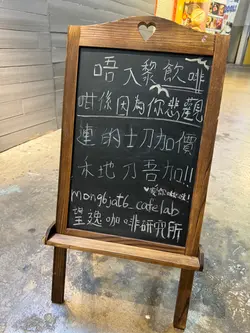 唔入黎飲啡
咁後因為你悲觀
連的士刀加價
本地刀吾加!!
mong6jat6_cafelab
望逸咖啡研究所